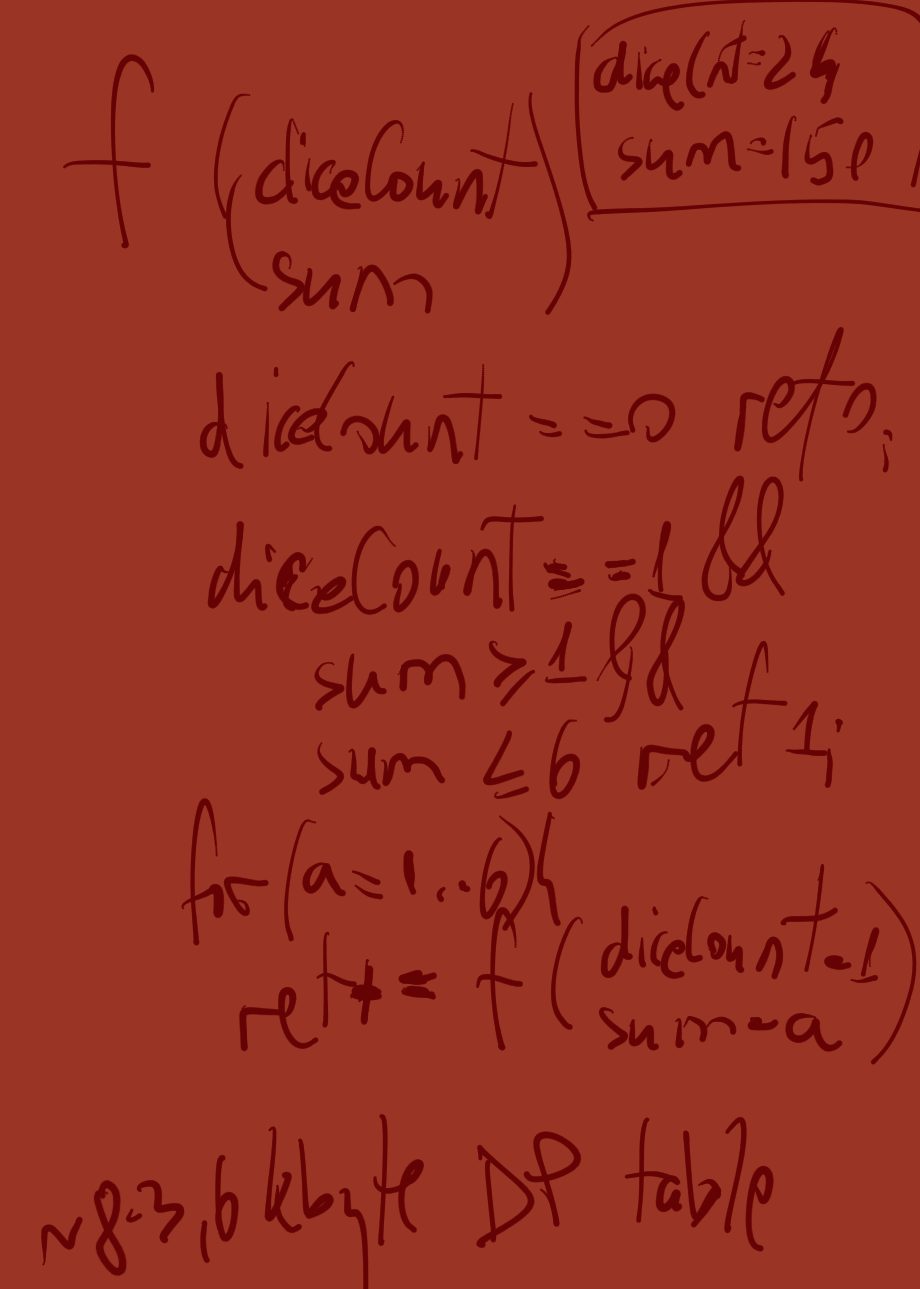 diceCnt=24
sum=150
f (diceCount
sum)
diceCount ==0 ret 0;
diceCount ==1 &&
sum ≥1 &&
sum ≤6 ret 1;
for (a=1..6){
ret+= f (diceCount-1
sum-a)
~8·3,6 kbyte DP table